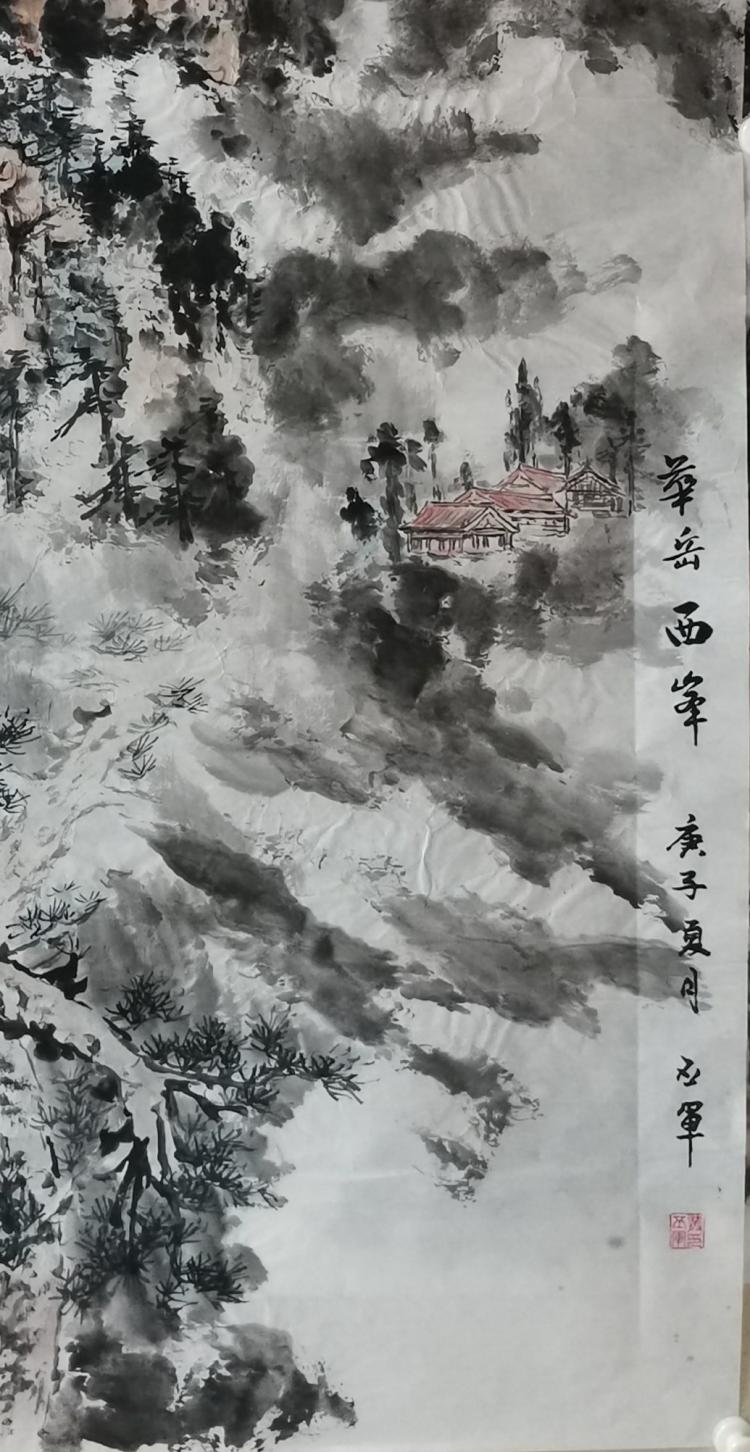 華岳西峯 庚子夏月 石軍